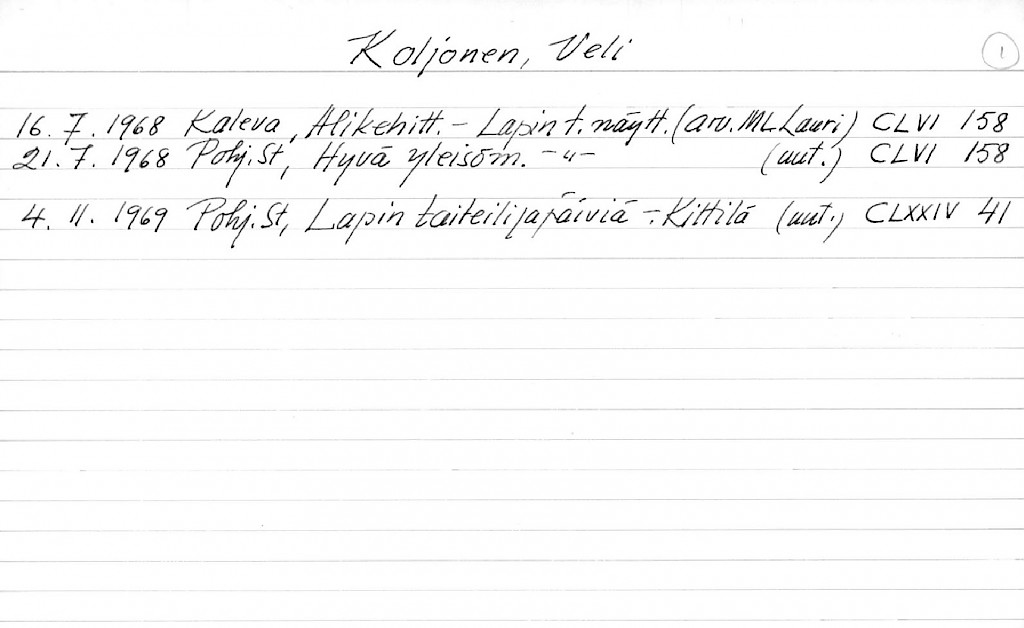 Koljonen, Veli
1
16. 7. 1968 Kaleva, Alikehitt. - Lapin t. näytt. (arv. ML Lauri) CLVI 158
21. 7. 1968 Pohj. St, Hyvä yleisöm. -"- (uut.) CLVI 158
4. 11. 1969 Pohj. St, Lapin taiteilijapäiviä -:- Kittilä (uut.) CLXXIV 41